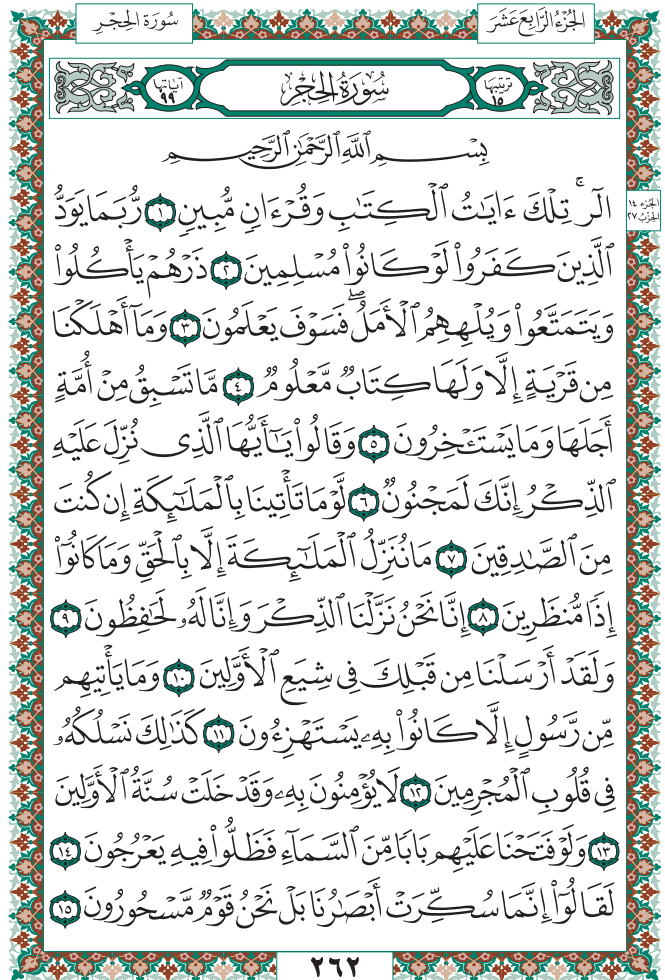 الجُزْءُ الرَّابِعَ عَشَرَ
سُورَةُ الحِجْرِ
ترتيبها ١٥
سُورَةُ الحِجْرِ
آياتها ٩٩
بِسْمِ ٱللَّهِ ٱلرَّحْمَٰنِ ٱلرَّحِيمِ
الٓرۚ تِلْكَ ءَايَٰتُ ٱلْكِتَٰبِ وَقُرْءَانٍ مُّبِينٍ ١ رُّبَمَا يَوَدُّ
الجزء ١٤
الحزب ٢٧
ٱلَّذِينَ كَفَرُوا۟ لَوْ كَانُوا۟ مُسْلِمِينَ ٢ ذَرْهُمْ يَأْكُلُوا۟
وَيَتَمَتَّعُوا۟ وَيُلْهِهِمُ ٱلْأَمَلُۖ فَسَوْفَ يَعْلَمُونَ ٣ وَمَآ أَهْلَكْنَا
مِن قَرْيَةٍ إِلَّا وَلَهَا كِتَابٌ مَّعْلُومٌ ٤ مَّا تَسْبِقُ مِنْ أُمَّةٍ
أَجَلَهَا وَمَا يَسْتَـْٔخِرُونَ ٥ وَقَالُوا۟ يَٰٓأَيُّهَا ٱلَّذِى نُزِّلَ عَلَيْهِ
ٱلذِّكْرُ إِنَّكَ لَمَجْنُونٌ ٦ لَّوْ مَا تَأْتِينَا بِٱلْمَلَٰٓئِكَةِ إِن كُنتَ
مِنَ ٱلصَّٰدِقِينَ ٧ مَا نُنَزِّلُ ٱلْمَلَٰٓئِكَةَ إِلَّا بِٱلْحَقِّ وَمَا كَانُوٓا۟
إِذًا مُّنظَرِينَ ٨ إِنَّا نَحْنُ نَزَّلْنَا ٱلذِّكْرَ وَإِنَّا لَهُۥ لَحَٰفِظُونَ ٩
وَلَقَدْ أَرْسَلْنَا مِن قَبْلِكَ فِى شِيَعِ ٱلْأَوَّلِينَ ١٠ وَمَا يَأْتِيهِم
مِّن رَّسُولٍ إِلَّا كَانُوا۟ بِهِۦ يَسْتَهْزِءُونَ ١١ كَذَٰلِكَ نَسْلُكُهُۥ
فِى قُلُوبِ ٱلْمُجْرِمِينَ ١٢ لَا يُؤْمِنُونَ بِهِۦ وَقَدْ خَلَتْ سُنَّةُ ٱلْأَوَّلِينَ
١٣ وَلَوْ فَتَحْنَا عَلَيْهِم بَابًا مِّنَ ٱلسَّمَآءِ فَظَلُّوا۟ فِيهِ يَعْرُجُونَ ١٤
لَقَالُوٓا۟ إِنَّمَا سُكِّرَتْ أَبْصَٰرُنَا بَلْ نَحْنُ قَوْمٌ مَّسْحُورُونَ ١٥
٢٦٢